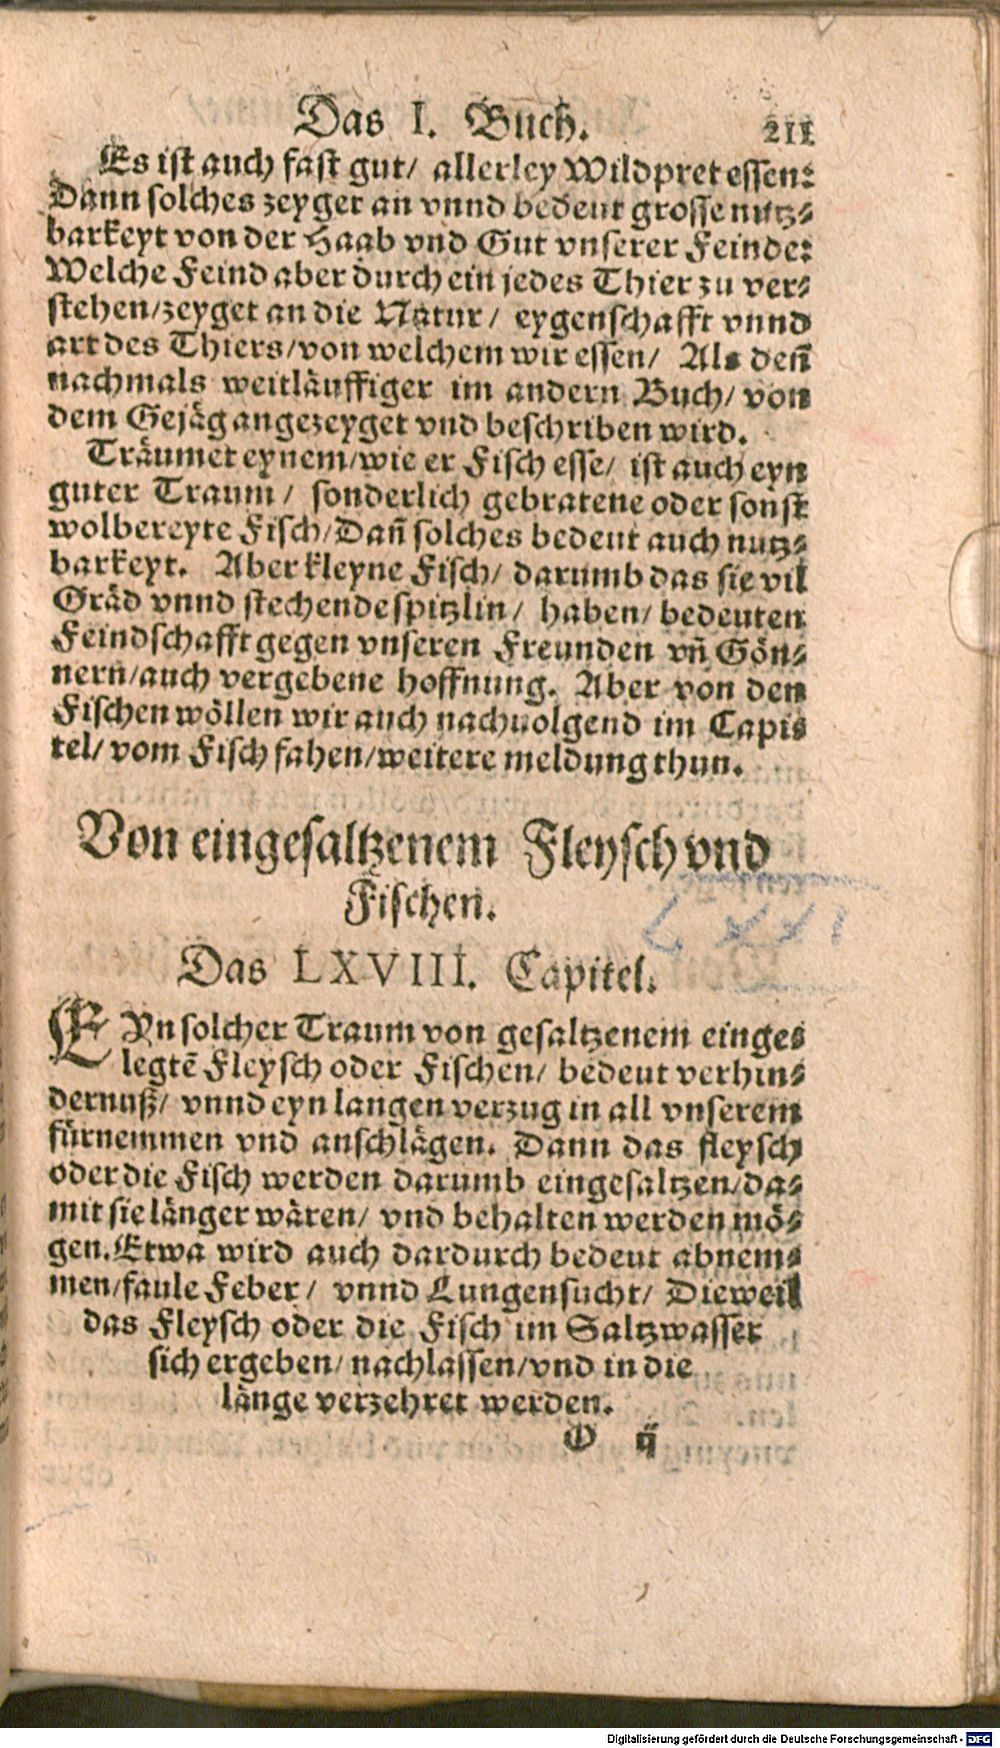 Das I. Buch. 211
Es ist auch fast gut/ allerley Wildpret essen:
Dann solches zeyget an vnnd bedeut grosse nutz-
barkeyt von der Haab vnd Gut vnserer Feinde:
Welche Feind aber durch ein jedes Thier zu ver-
stehen/zeyget an die Natur/ eygenschafft vnnd
art des Thiers/von welchem wir essen/ Als deñ
nachmals weitläuffiger im andern Buch/ von
dem Gejäg angezeyget vnd beschriben wird.
Träumet eynem/wie er Fisch esse/ ist auch eyn
guter Traum/ sonderlich gebratene oder sonst
wolbereyte Fisch/Dañ solches bedeut auch nutz-
barkeyt. Aber kleyne Fisch/ darumb das sie vil
Gräd vnnd stechende spitzlin/ haben/ bedeuten
Feindschafft gegen vnseren Freunden vñ Gön-
nern/auch vergebene hoffnung. Aber von den
Fischen wöllen wir auch nachuolgend im Capi-
tel/ vom Fisch fahen/weitere meldung thun.
Von eingesaltzenem Fleysch vnd
Fischen.
LXXI
Das LXVIII. Capitel.
EYn solcher Traum von gesaltzenem einge-
legtẽ Fleysch oder Fischen/ bedeut verhin-
dernuß/ vnnd eyn langen verzug in all vnserem
fürnemmen vnd anschlägen. Dann das fleysch
oder die Fisch werden darumb eingesaltzen/da-
mit sie länger wären/ vnd behalten werden mö-
gen. Etwa wird auch dardurch bedeut abnem-
men/faule Feber/ vnnd Lungensucht/ Dieweil
das Fleysch oder die Fisch im Saltzwasser
sich ergeben/nachlassen/vnd in die
länge verzehret werden.
O ij
Digitalisierung gefördert durch die Deutsche Forschungsgemeinschaft - DFG